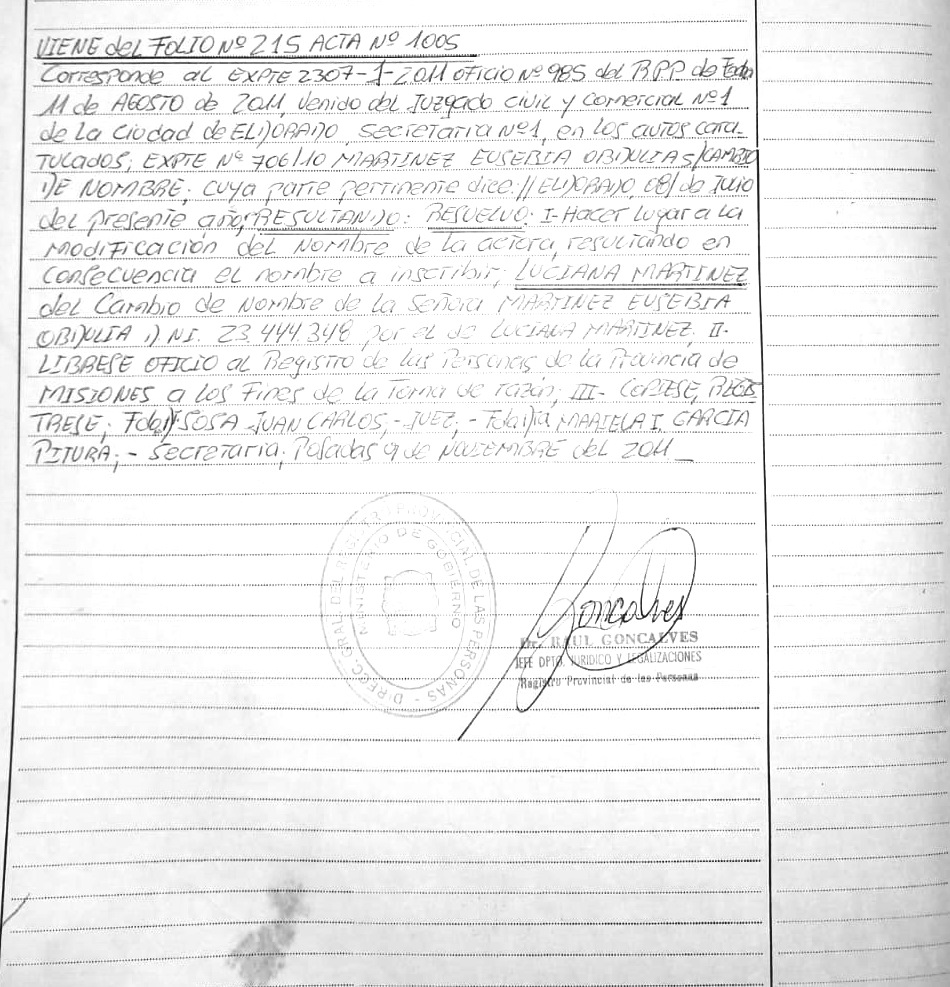 VIENE del FOLIO Nº 215 ACTA Nº 1005
Corresponde al EXPTE 2307-1-2011 oficio Nº 985 del RPP de Fecha
11 de AGOSTO de 2011, venido del Juzgado civil y comercial Nº1
de la Ciudad de ELDORADO, secretaria Nº1, en los autos cara-
TULADOS; EXPTE Nº 706/10 MARTINEZ EUSEBIA OBDULIA S/CAMBIO
DE NOMBRE; cuya parte pertinente dice: // ELDORADO, 08/ de Julio
del presente año; RESULTANDO: RESUELVO: I-Hacer lugar a la
Modificación del Nombre de la actora, resultando en
Consecuencia el nombre a inscribir; LUCIANA MARTINEZ
del Cambio de Nombre de la Señora MARTINEZ EUSEBIA
OBDULIA D.NI. 23.444.348 por el de LUCIANA MARTINEZ, II-
LIBRESE OFICIO al Registro de las Personas de la Provincia de
MISIONES a los Fines de la Toma de razón; III- COPIESE, REGIS
TRESE; Fdo: SOSA JUAN CARLOS,- JUEZ,- MARIELA I. GARCIA
PITURA;- Secretaria; Posadas 9 de NOVIEMBRE del 2011_
DIRECC. GRAL. DEL REGISTRO PROVINCIAL DE LAS PERSONAS -
MINISTERIO DE GOBIERNO
Goncalves
Dr. RAUL GONCALVES
JEFE DPTO. JURIDICO Y LEGALIZACIONES
Registro Provincial de las Personas